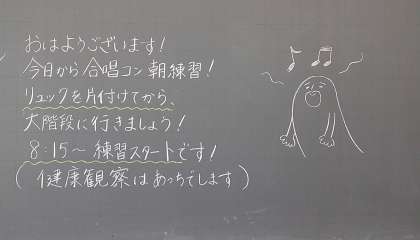 おはようございます!
今日から合唱コン朝練習!
リュックを片付けてから、
大階段に行きましょう!
8:15～練習スタートです!
(健康観察はあっちでします)